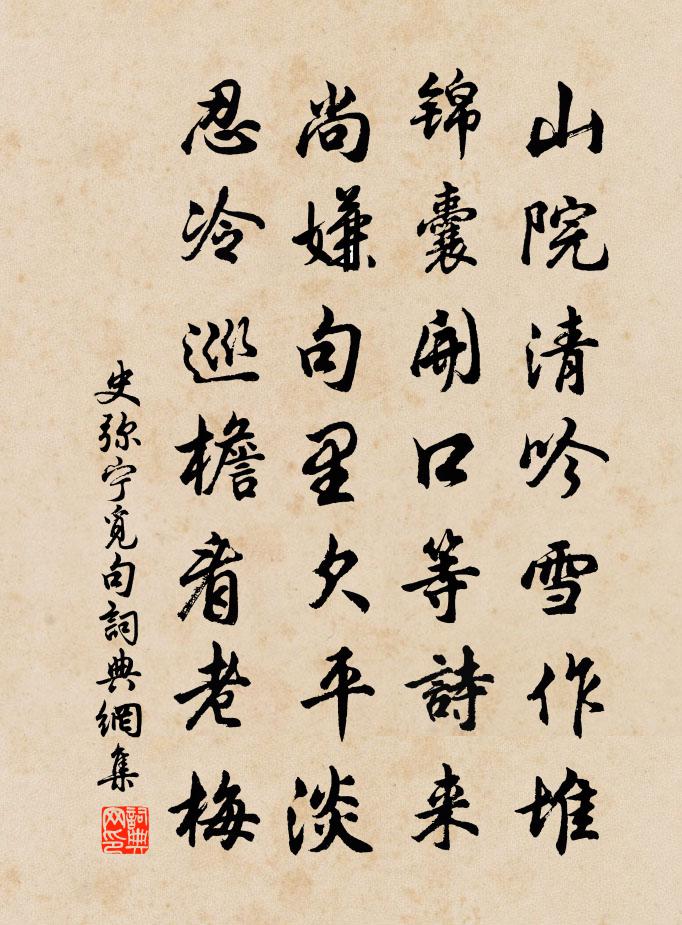 山院清吟雪作堆
锦囊開口等詩来
尚嫌句里欠平淡
忍冷巡檐看老梅
史弥宁觅句詞典網集
詞典网印